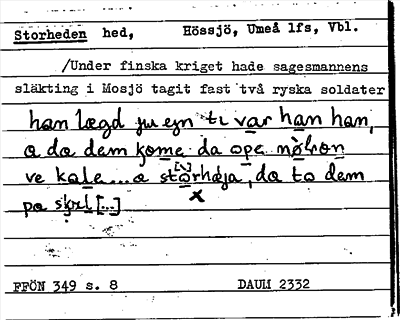 Storheden hed, Hössjö, Umeå lfs, Vbl.
/Under finska kriget hade sagesmannens
släkting i Mosjö tagit fast två ryska soldater
han lægd ju ejn ti var han han,
a da dem kome da opa
ve kale...a storhæja, da to dem
pa [...]
x
FFÖN 349 s. 8 DAUM 2332